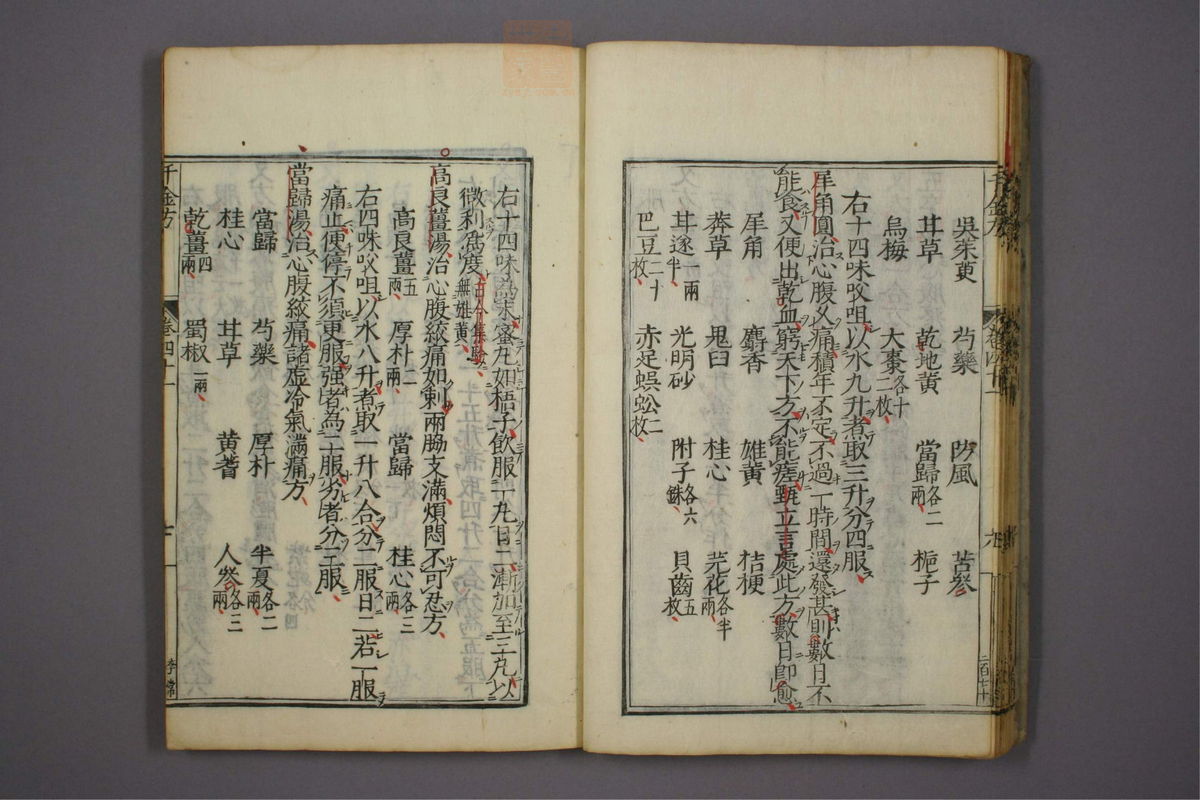 吳茱萸 芍藥 防風 苦參
甘草 乾地黃 當歸各二兩 梔子
烏梅 大棗各十二枚
右十四味㕮咀以水九升煮取三升分四服
犀角圓治心腹久痛積年不定不過一時間還發甚則數日不
能食又便出乾血窮天下方不能瘥甄立言處此方數日即愈
犀角 麝香 雄黃 桔梗
莽草 鬼臼 桂心 芫花各半兩
甘遂一兩半 光明砂 附子各六銖 貝齒五枚
巴豆二十枚 赤足蜈蚣二枚
右十四味爲末蜜丸如梧子飲服一丸日二漸加至三丸以
微利爲度古今集驗無雄黃
高良薑湯治心腹絞痛如刺兩脇支滿煩悶不可忍方
高良薑五兩 厚朴二兩 當歸 桂心各三兩
右四味㕮咀以水八升煮取一升八合分二服日二若一服
痛止便停不須更服強者為二服劣者分三服
當歸湯治心腹絞痛諸虛冷氣滿痛方
當歸 芍藥 厚朴 半夏各二兩
桂心 甘草 黃耆 人參各三兩
乾薑四兩 蜀椒一兩
千金方 卷四十一 七 李常